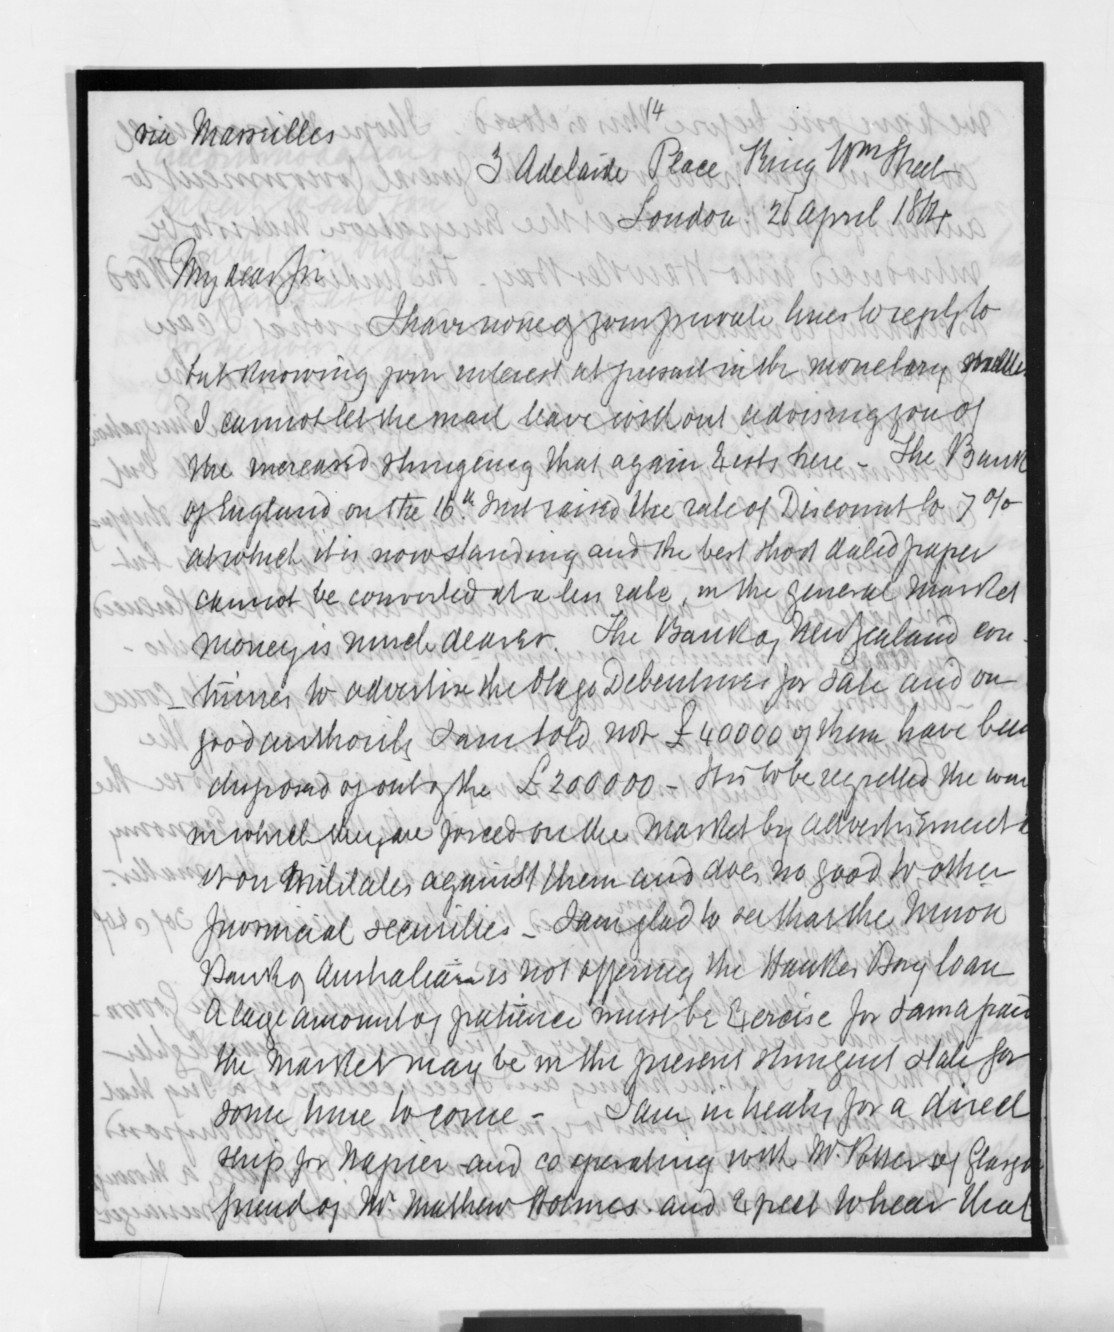 14
via Marseilles
3 Adelaide Place King Wm Street
London 26 April 1864
My dear Sir
I have none of your private lines to reply to
but knowing your interest at present in the monetary
I cannot let the mail leave without advising you of
the increased stringency that again Exists here - The Bank
of England on the 16th Inst raised the rate of Discount to 7 o/o
at which it is now standing and the best short dated paper
cannot be converted at a less rate, in the general market
money is much dearer. The Bank of New Zealand con-
-tinues to advertise the Otago Debentures for sale and on
good authority I am told not £40000 of them have been
disposed of out of the £200000 - It is to be regretted the way
in which they are forced on the market by advertisement
it on militates against them and does no good to other
Provincial securities - I am glad to see that the Union
Bank of Australia is not offering the Hawkes Bay loan
A large amount of patience must be Exercise for I am afraid
the market may be in the present stringent state for
some time to come - I am in treaty for a direct
ship for Napier and cooperating with Mr Potter of Glasgow
friend of Mr Mathew Holmes and Expect to hear that